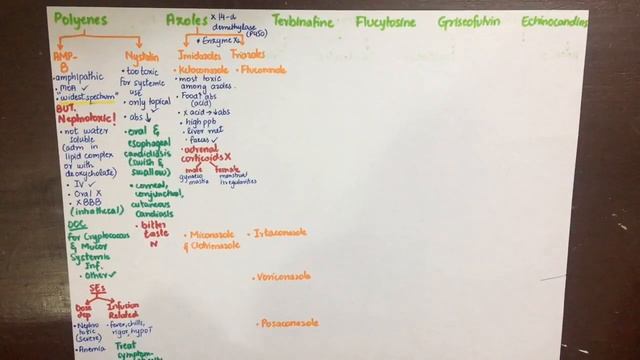 Polyenes
Azoles
x 14-α
demethylase
(P450)
Terbinafine
Flucytosine
Griseofulvin
Echinocandins
* Enzyme X
AMP-
B
Nystatin
Imidazoles
Triazoles
• amphipathic
• MOA ✓
• "widest spectrum"
BUT.
Nephrotoxic!
• not water
soluble
(adm in
lipid complex
or with
deoxycholate)
• IV ✓
• Oral X
• X BBB
(intrathecal)
DOC
for Cryptococcus
& Mucor
Systemic
Inf.
• Other ✓
SEs
Dose
dep
Infusion
Related
• Nephro
toxic
(severe)
• Anemia
• fever, chills,
rigor, hypoT
Treat
symptom-
• too toxic
for systemic
use
• only topical
• abs ↓
• oral &
esophageal
candidiasis
(swish &
swallow)
• corneal,
conjunctival,
cutaneous
Candiasis
• bitter
taste
N
• Ketoconazole
• most toxic
among azoles.
• Food↑ abs
(acid)
• x acid → ↓abs
• high ppb
• liver met
• faeces ✓
• adrenal
corticoids X
male
gynaeco
mastia
female
menstrual
irregularities
• Miconazole
& Clotrimazole
• Fluconazole
• Itraconazole
• Voriconazole
• Posaconazole